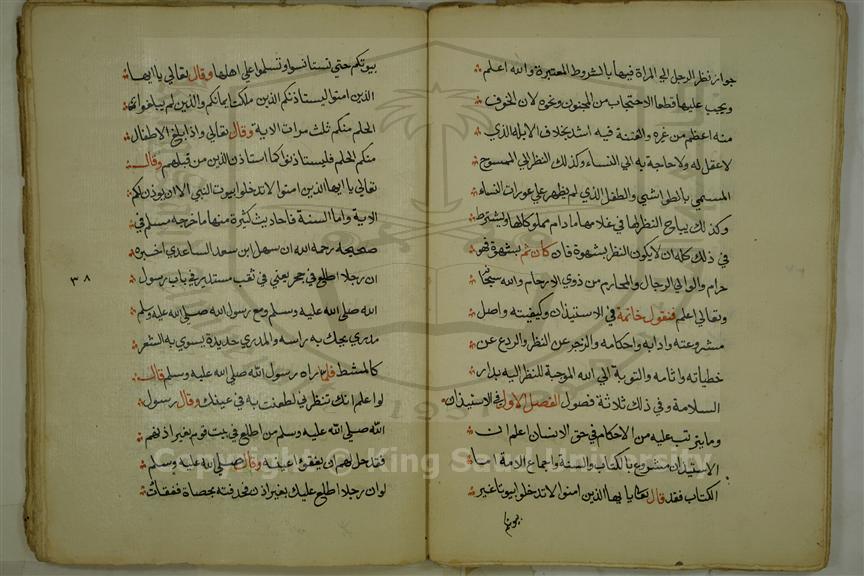 جواز نظر الرجل الي المراة فيها بالشروط المعتبرة والله اعلم
ويجب عليها قطعا الاحتجاب من المجنون وغيره لان الخوف
منه اعظم من غيره والفتنة فيه اشد بخلاف الابله الذي
لا عقل له ولا حاجة به الي النساء وكذلك النظر الي الممسوح
المسمي بالطواشي والطفل الذي لم يظهر علي عورات النساء
وكذلك يباح النظر لها في غلامها ما دام مملوكا لها ويشترط
في ذلك كله ان لا يكون النظر بشهوة فان كان ثم بشهوة فهو
حرام والوالي الرجال والمحارم من ذوي الارحام والله سبحانه
وتعالي اعلم فنقول خاتمة في الاستيذان وكيفيته واصل
مشروعته وادابه واحكامه والزجر عن النظر والردع عن
خطياته واثامه والتوبة الي الله الموجبة للنظر اليه بدار
السلامة وفي ذلك ثلاثة فصول الفصل الاول في الاستيذان
وما يترتب عليه من الاحكام في حق الانسان اعلم ان
الاستيذان مشروع بالكتاب والسنة واجماع الامة اما
الكتاب فقد قال تعالي يا ايها الذين امنوا لا تدخلوا بيوتا غير
بيوتكم
بيوتكم حتي تستانسوا وتسلموا علي اهلها وقال تعالي يا ايها
الذين امنوا ليستاذنكم الذين ملكت ايمانكم والذين لم يبلغوا
الحلم منكم ثلث مرات الاية وقال تعالي واذا بلغ الاطفال
منكم الحلم فليستاذنوا كما استاذن الذين من قبلهم وقال
تعالي يا ايها الذين امنوا لا تدخلوا بيوت النبي الا ان يوذن لكم
الاية واما السنة فاحاديث كثيرة منها ما خرجه مسلم في
صحيحه رحمه الله ان سهل ابن سعد الساعدي اخبره
ان رجلا اطلع في جحر يعني في ثقب مستدير في باب رسول
٣٨
الله صلي الله عليه وسلم ومع رسول الله صلي الله عليه وسلم
مدري يحك به راسه والمدري حديدة يسوي به الشعر
كالمشط فلما راه رسول الله صلي الله عليه وسلم قال
لو اعلم انك تنظر في لطعنت به في عينك وقال رسول
الله صلي الله عليه وسلم من اطلع في بيت قوم بغير اذنهم
فقد حل لهم ان يفقؤا عينه وقال صلي الله عليه وسلم
لو ان رجلا اطلع عليك بغير اذن فحذفته بحصاة ففقات
Copyright © King Saud University
1957